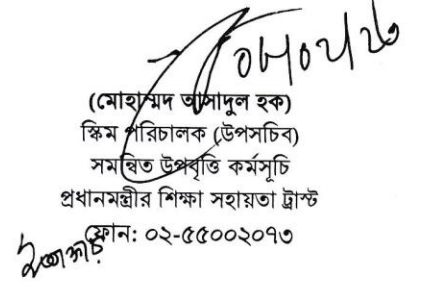 ০৮/০২/২৬
(মোহাম্মদ আসাদুল হক)
স্কিম পরিচালক (উপসচিব)
সমন্বিত উপবৃত্তি কর্মসূচি
প্রধানমন্ত্রীর শিক্ষা সহায়তা ট্রাস্ট
ফোন: ০২-৫৫০০২০৭৩